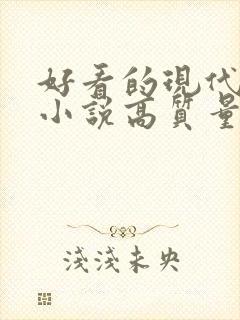 好看的現代
小說高質量
淺淺未央